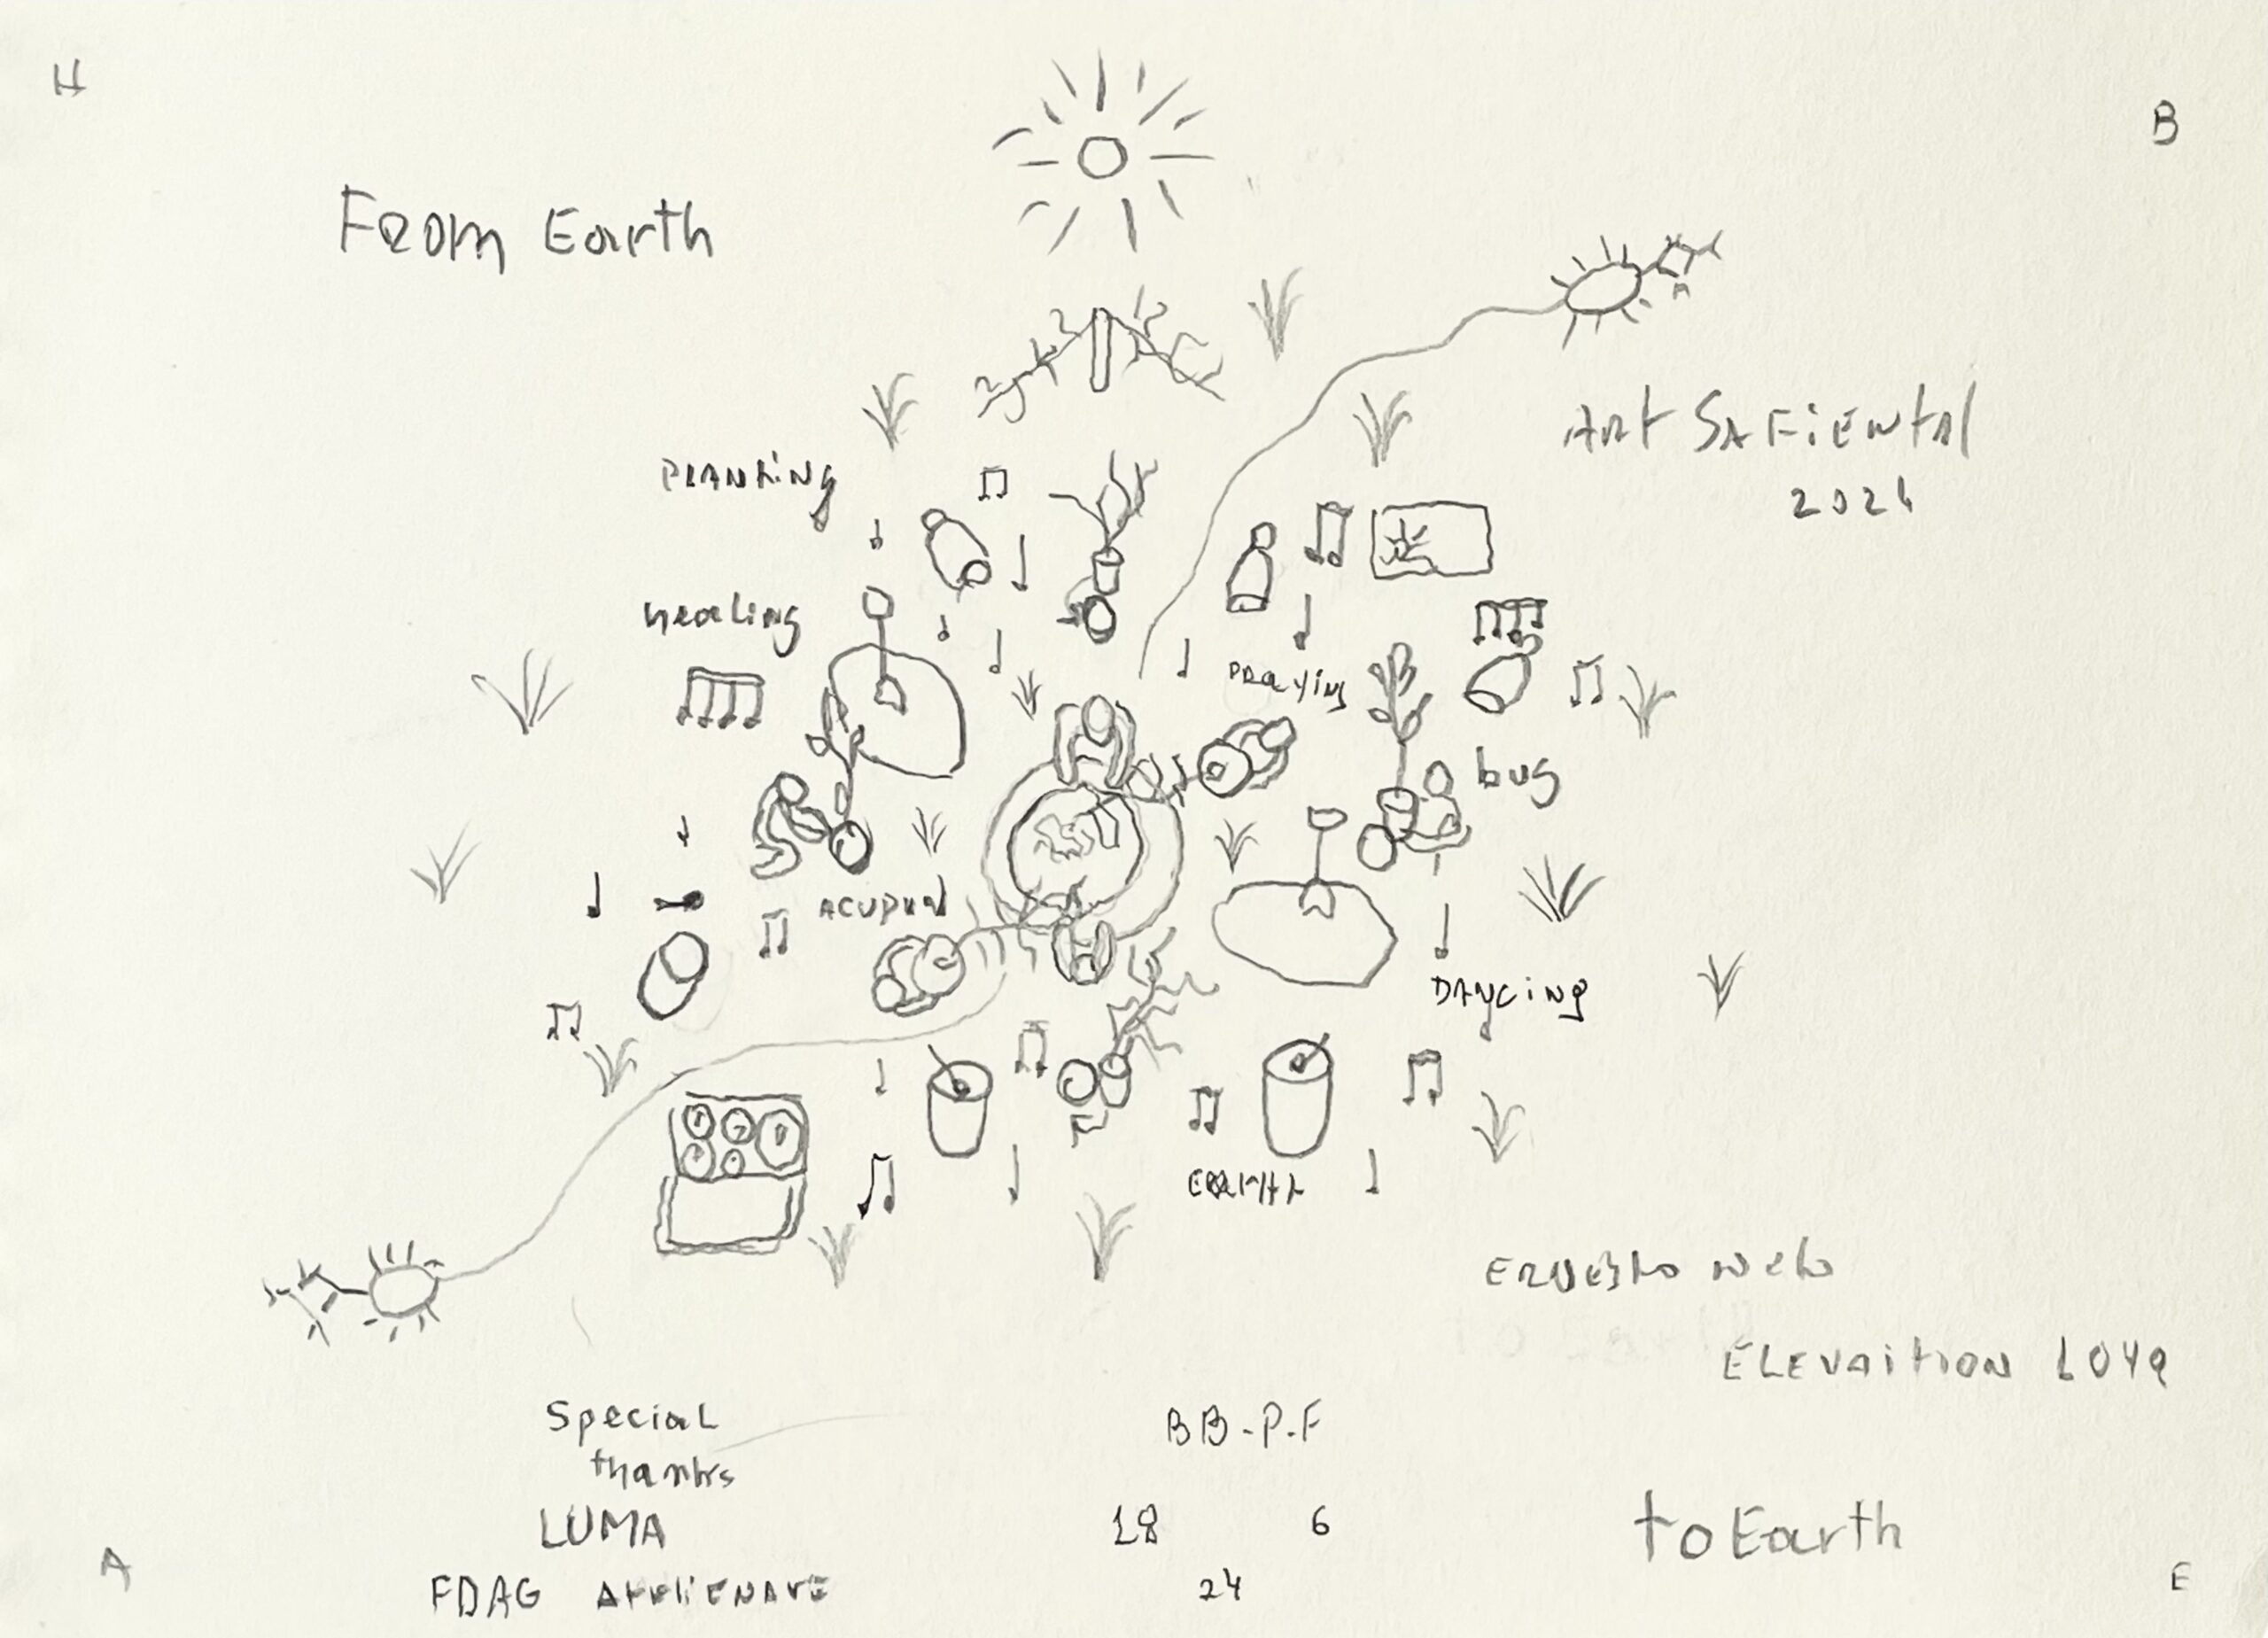 H
B
From Earth
Art SAFiEntAl
2024
PLANTiNg
healing
PRayiNg
bug
ACUPUN
DANCiNg
EARTH
ERNESto Neto
ELEVAiTiON 1049
Special
thanks
BB-P.F
LUMA
18 6
to Earth
A
FDAG
24
E